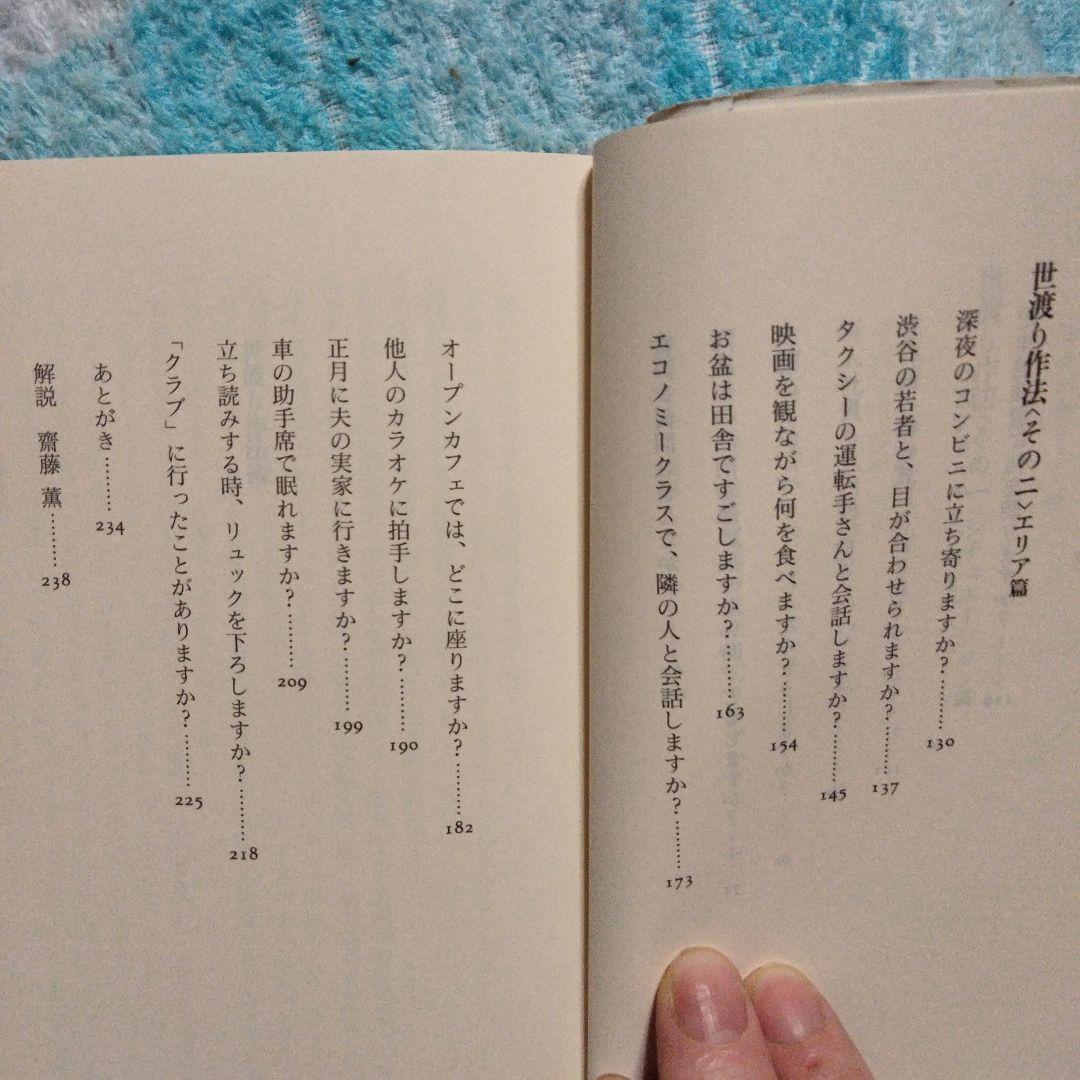 世渡り作法〈その二〉エリア篇
深夜のコンビニに立ち寄りますか？…………130
渋谷の若者と、目が合わせられますか？…………137
タクシーの運転手さんと会話しますか？…………145
映画を観ながら何を食べますか？…………154
お盆は田舎ですごしますか？…………163
エコノミークラスで、隣の人と会話しますか？…………173
オープンカフェでは、どこに座りますか？…………182
他人のカラオケに拍手しますか？…………190
正月に夫の実家に行きますか？…………199
車の助手席で眠れますか？…………209
立ち読みする時、リュックを下ろしますか？…………218
「クラブ」に行ったことがありますか？…………225
あとがき…………234
解説　齋藤 薫…………238